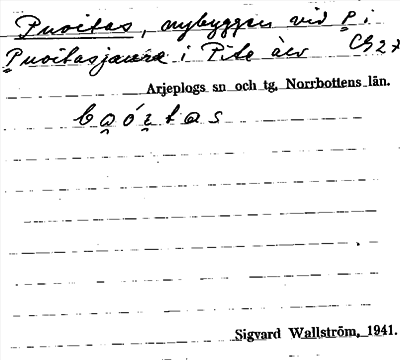 Puoitas, nybyggen vid P. i
Puoitasjaure i Pite älv
Arjeplogs sn och tg, Norrbottens län.
Sigvard Wallström, 1941.